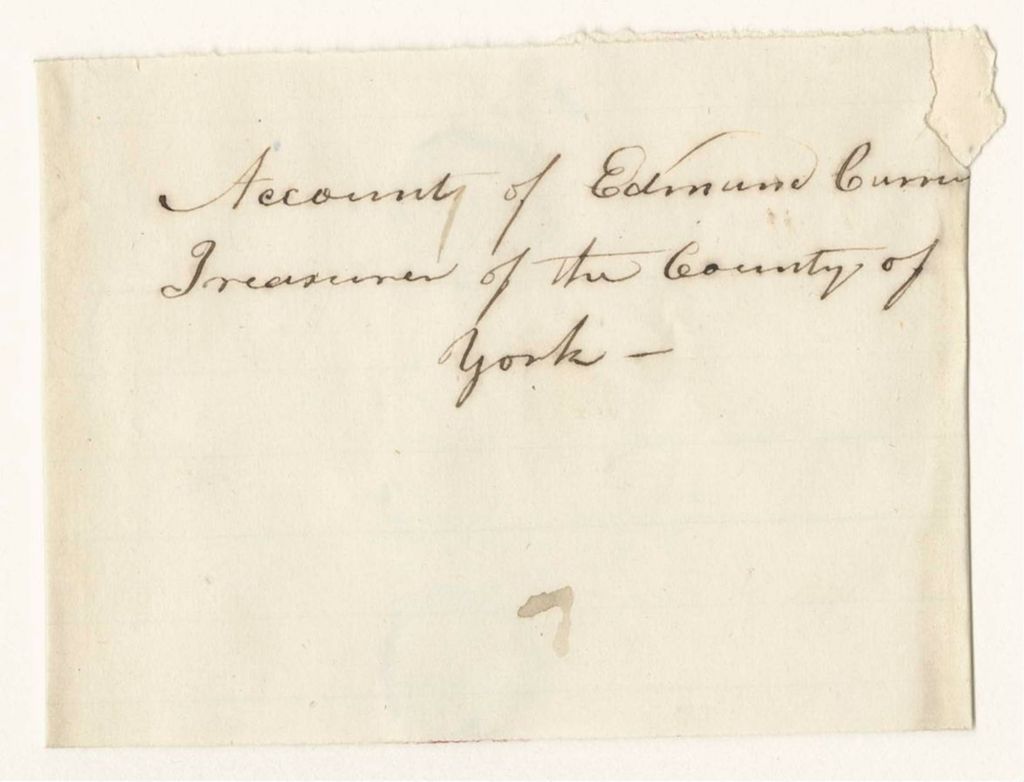 Account of Edmund
Treasurer of the County of
York —